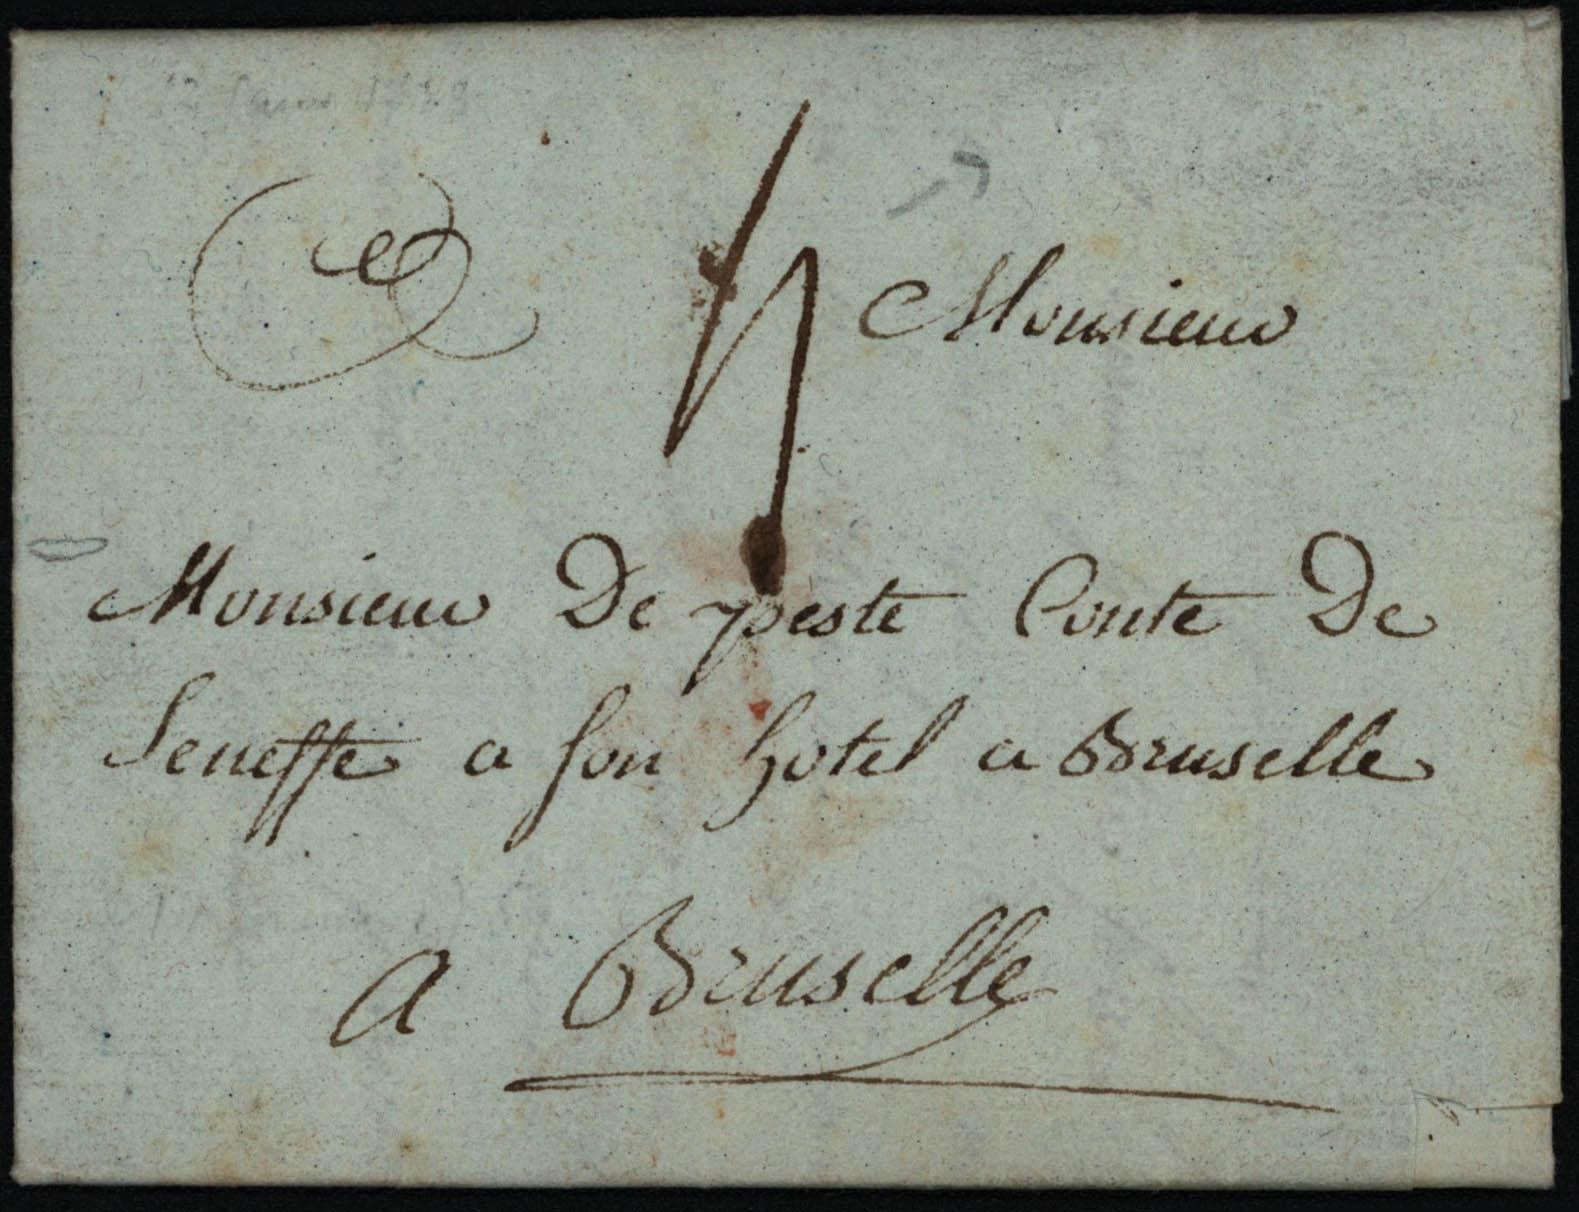 Monsieur
Monsieur De peste Conte De
Seneffe a son hotel a Bruselle
a Bruselle